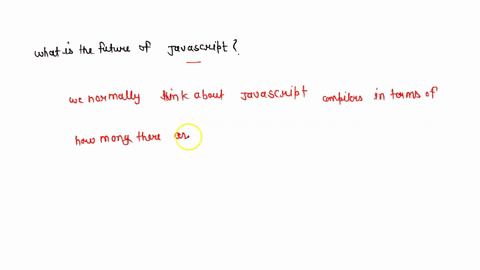 what is the future of Javascript?
we normally think about Javascript compilers in terms of
how many there ar